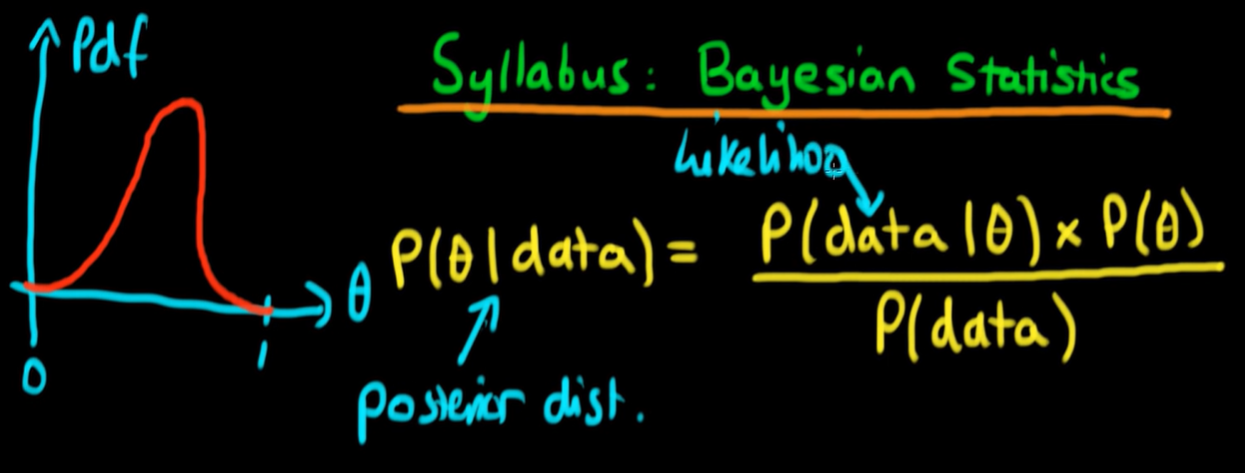 Pdf
Syllabus: Bayesian Statistics
Likelihoo
P(θ|data) = P(data|θ) × P(θ)
P(data)
θ
0
1
posterior dist.